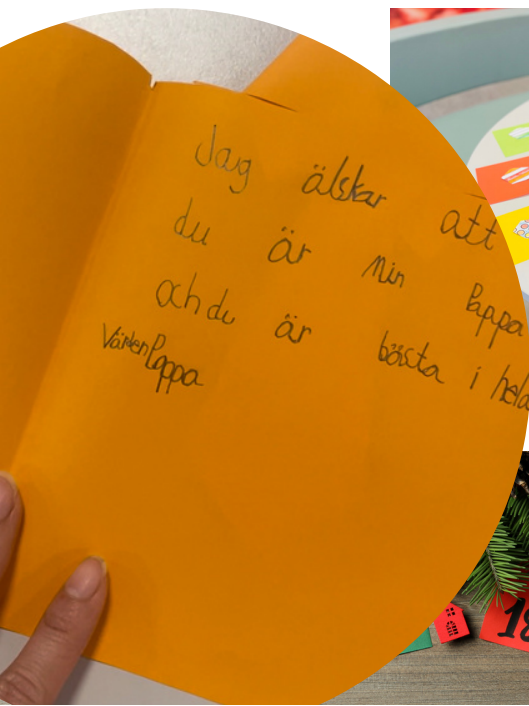 Jag älskar att
du är Min Pappa
och du är bästa i hela
Världen Pappa
18